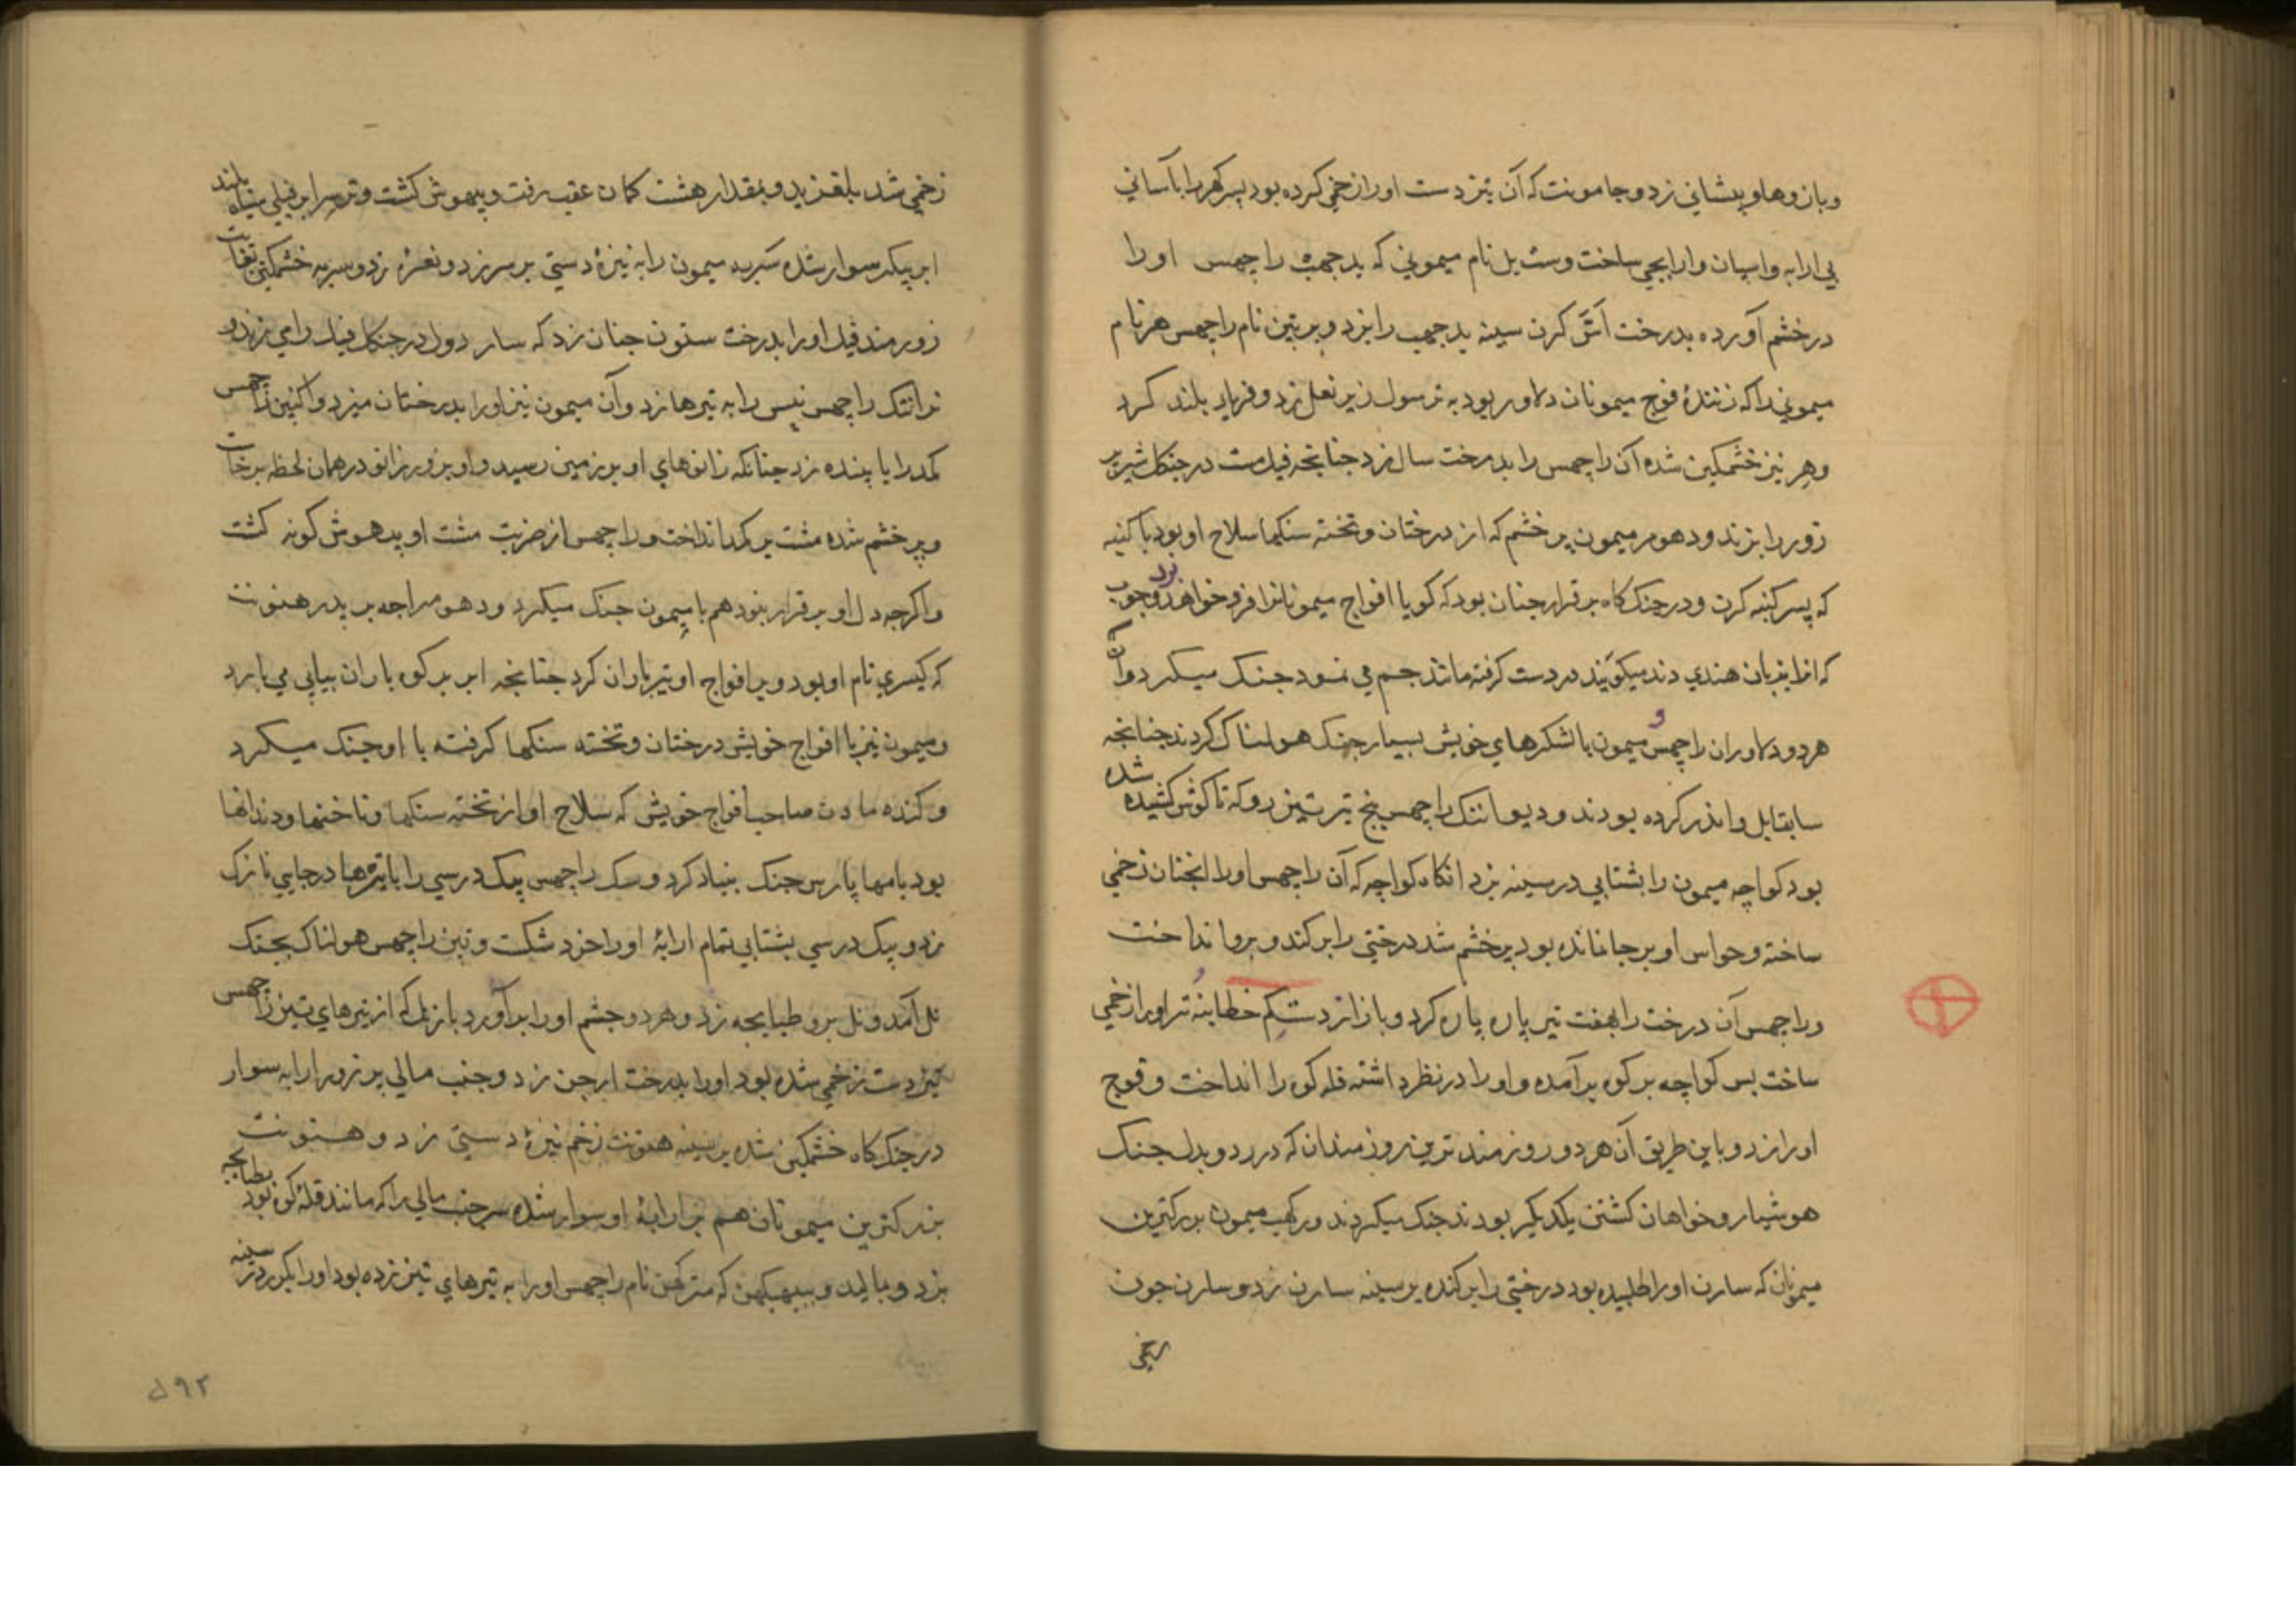 وبازوها و پیشانی زد و جامونت که آن تیزدست او را زخمی کرده بود پسر کهر را بآسانی
بی ارابه و اسپان و ارابچی ساخت و ست بل نام میمونی که بدجهب راچهس او را
در خشم آورده بدرخت اش کرن سینه بدجهب را بزد و برتپن نام راچهس هر نام
میمونی را که زنندهٔ فوج میمونان دلاور بود به ترسول زیر نعل زد و فریاد بلند کرد
وهر نیز خشمکین شده آن راچهس را بدرخت سال زد چنانچه فیل مست در جنکل شیر
زور را بزند و دهومر میمون پر خشم که از درختان و تخته سنکها سلاح او بود با کنبه
که پسر کنبه کرن و در جنک کاه برقرار چنان بود که کویا افواج میمونانرا فرو خواهد برد
که انرا بزبان هندی دند میکویند در دست کرفته مانند جم می نمود جنک میکرد و آن
هردو دلاوران راچهس و میمون با لشکرهای خویش بسیار جنک هولناک کردند چنانچه
سابقا بل و اندر کرده بودند و دیوانتک راچهس پنج تیر تیز رو که تا کوش کشیده شده
بود کواچه میمون را بشتابی در سینه بزد انکاه کواچه که آن راچهس او را انچنان زخمی
ساخته و حواس او برجا نمانده بود پر خشم شد درختی را برکند و برو انداخت
وراچهس آن درخت را بهفت تیر پاره پاره کرد و باز از دستکم خطا بنه تر او را زخمی
ساخت پس کواچه بر کوه برآمده و او را در نظر داشته قله کوه را انداخت و فوج
او را زد و باین طریق آن هردو روزمند ترین زورمندان که در رد و بدل جنک
هوشیار و خواهان کشتن یکدیکر بودند جنک میکردند و رکهب میمون بزرکترین
میمونان که سارن او را طلبیده بود درختی را برکنده بر سینه سارن زد و سارن چون
زخمی
زخمی شد بلغزید و بمقدار هشت کمان عقب رفت و بیهوش کشت و ترسرا بر فیلی سیاه بلند
ابر پیکر سوار شده سربه میمون را به نیزهٔ دستی بر سر زد و نعره زد و سربه خشمکین بغایت
زورمند فیل او را بدرخت ستون چنان زد که سار دول در جنکل فیل را می زند و
نرانتک راچهس نیس را به تیرها زد و آن میمون نیز او را بدرختان میزد و اکنین راچهس
کمد را با پنده زد چنانکه زانوهای او بر زمین رسید و او بزور زانو در همان لحظه برخاست
وپر خشم شده مشت بر کمد انداخت و راچهس از ضربت مشت او بیهوش کونه کشت
واکرچه دل او برقرار نبود هم با میمون جنک میکرد و دهومراچه بر پدر هنونت
که کیسری نام او بود و بر افواج او تیرباران کرد چنانچه ابر بر کوه باران بیاپی می بارد
ومیمون نیز با افواج خویش درختان و تخته سنکها کرفته با او جنک میکرد
وکنده مادن صاحب افواج خویش که سلاح او از تخته سنکها و ناخنها و دندانها
بود با مها پارس جنک بنیاد کرد و سک راچهس پیک درسی را با تیرها در جایی نازک
زد و پیک درسی بشتابی تمام ارابهٔ او را خرد شکست و تپن راچهس هولناک بجنک
نل آمد و نل برو طپانچه زد و هر دو چشم او را برآورد باز نل که از تیرهای تیز راچهس
تیزدست زخمی شده بود او را بدرخت ارجن زد و جنب مالی بر زور ارابه سوار
در جنک کاه خشمکین شده بر سینه هنونت زخم نیزهٔ دستی زد و هنونت
بزرکترین میمونان هم بر ارابهٔ او سوار شده سر جنب مالی را که مانند قلهٔ کوه بود بطپانچه
بزد و مالید و ببهیکهن که متر کهن نام راچهس او را به تیرهای تیز زده بود او را بکرز در سینه
۵۹۲